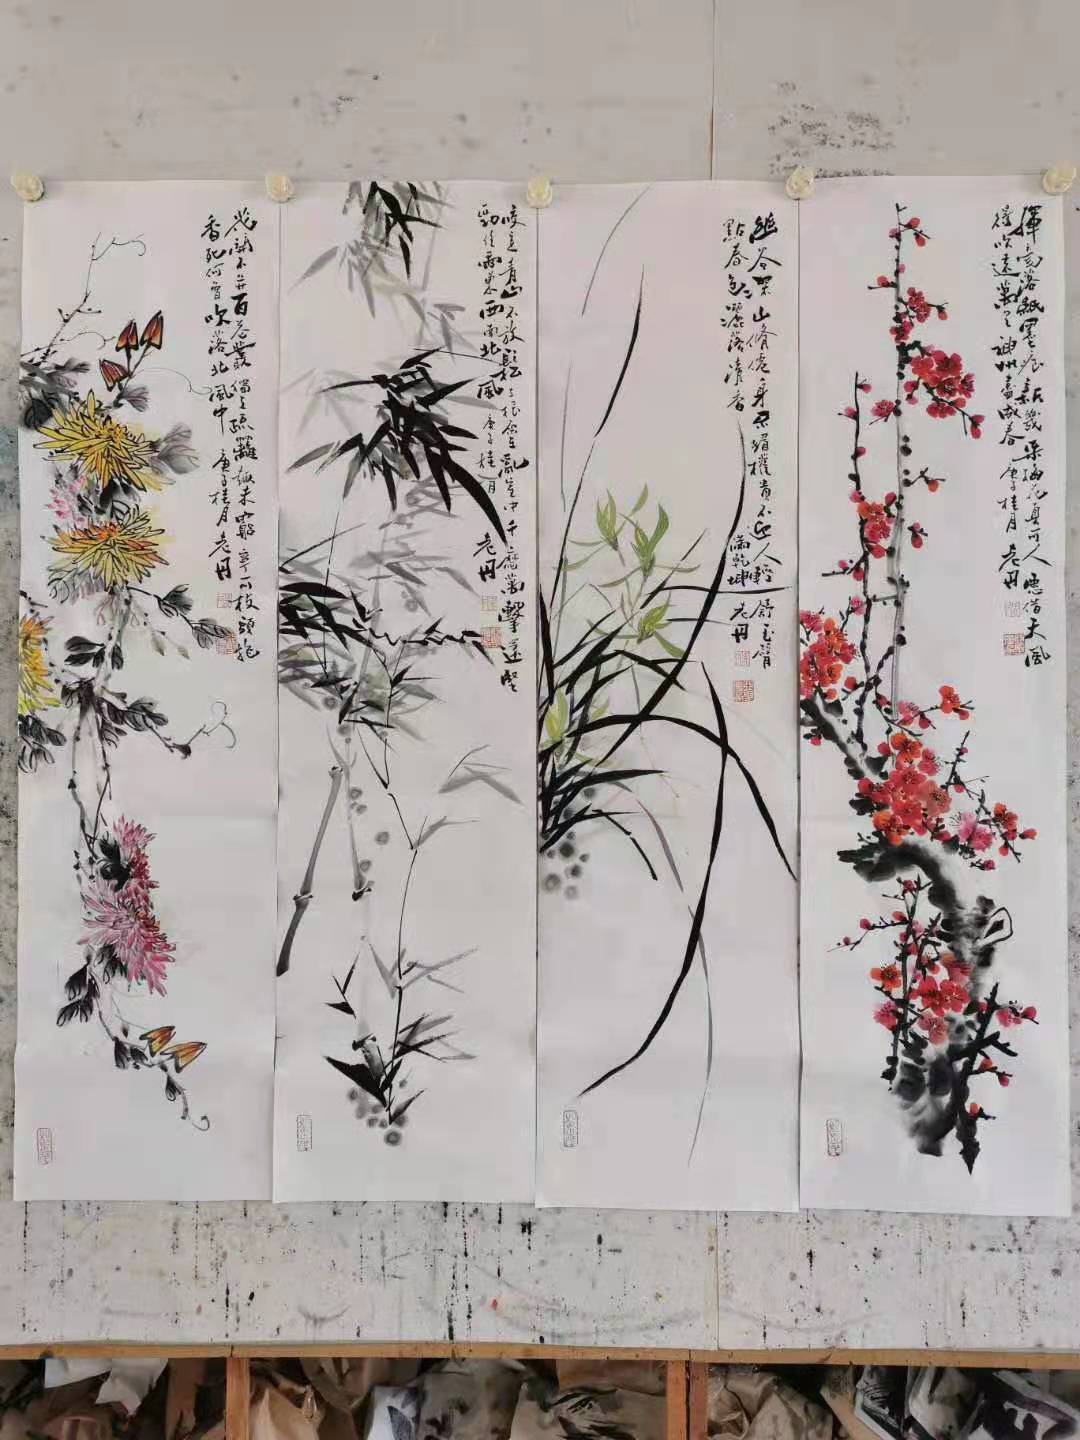 揮毫落紙墨痕新幾朵梅花真可人愿借天風
得吹遠萬里神州盡春 庚子桂月 老丹
幽谷深山脩身不媚權貴不迎人輕舒玉臂
點春色灑落清香滿乾坤 老丹
咬定青山不放鬆立根原在亂崖中千磨萬擊還堅
勁任爾東西南北風 庚子桂月 老丹
花開不并百花叢獨立疏籬趣未窮寧可枝頭抱
香死何曾吹落北風中 庚子桂月 老丹